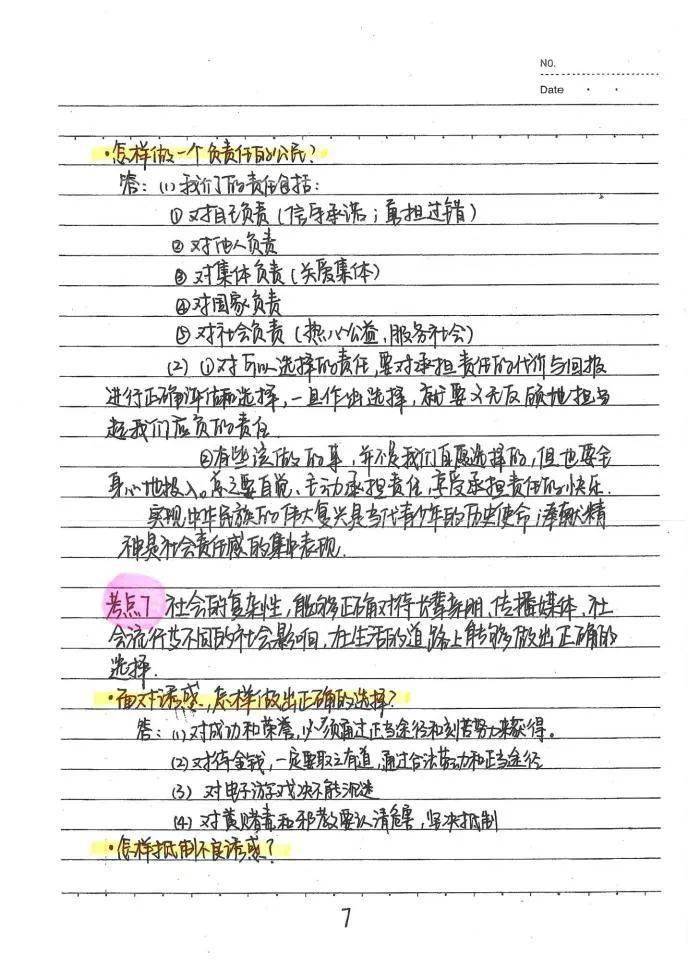 NO.
Date
·怎样做一个负责任的公民?
答:(1)我们的责任包括:
①对自己负责(信守承诺;勇担过错)
②对他人负责
③对集体负责(关爱集体)
④对国家负责
⑤对社会负责(热心公益,服务社会)
(2)①对可以选择的责任,要对承担责任的代价与回报
进行正确评估和选择,一旦作出选择,就要义无反顾地担当
起我们应负的责任.
②有些该做的事,并不是我们自愿选择的,但也要全
身心地投入。总之要自觉、主动承担责任,享受承担责任的快乐.
实现中华民族的伟大复兴是当代青少年的历史使命;奉献精
神是社会责任感的集中表现.
考点7 社会的复杂性,能够正确对待长辈亲朋、传播媒体、社
会流行等不同的社会影响,在生活的道路上能够做出正确的
选择.
·面对诱惑,怎样做出正确的选择?
答:(1)对成功和荣誉,必须通过正当途径和刻苦努力来获得。
(2)对待金钱,一定要取之有道,通过合法劳动和正当途径
(3)对电子游戏决不能沉迷
(4)对黄赌毒和邪教要认清危害,坚决抵制
·怎样抵制不良诱惑?
7